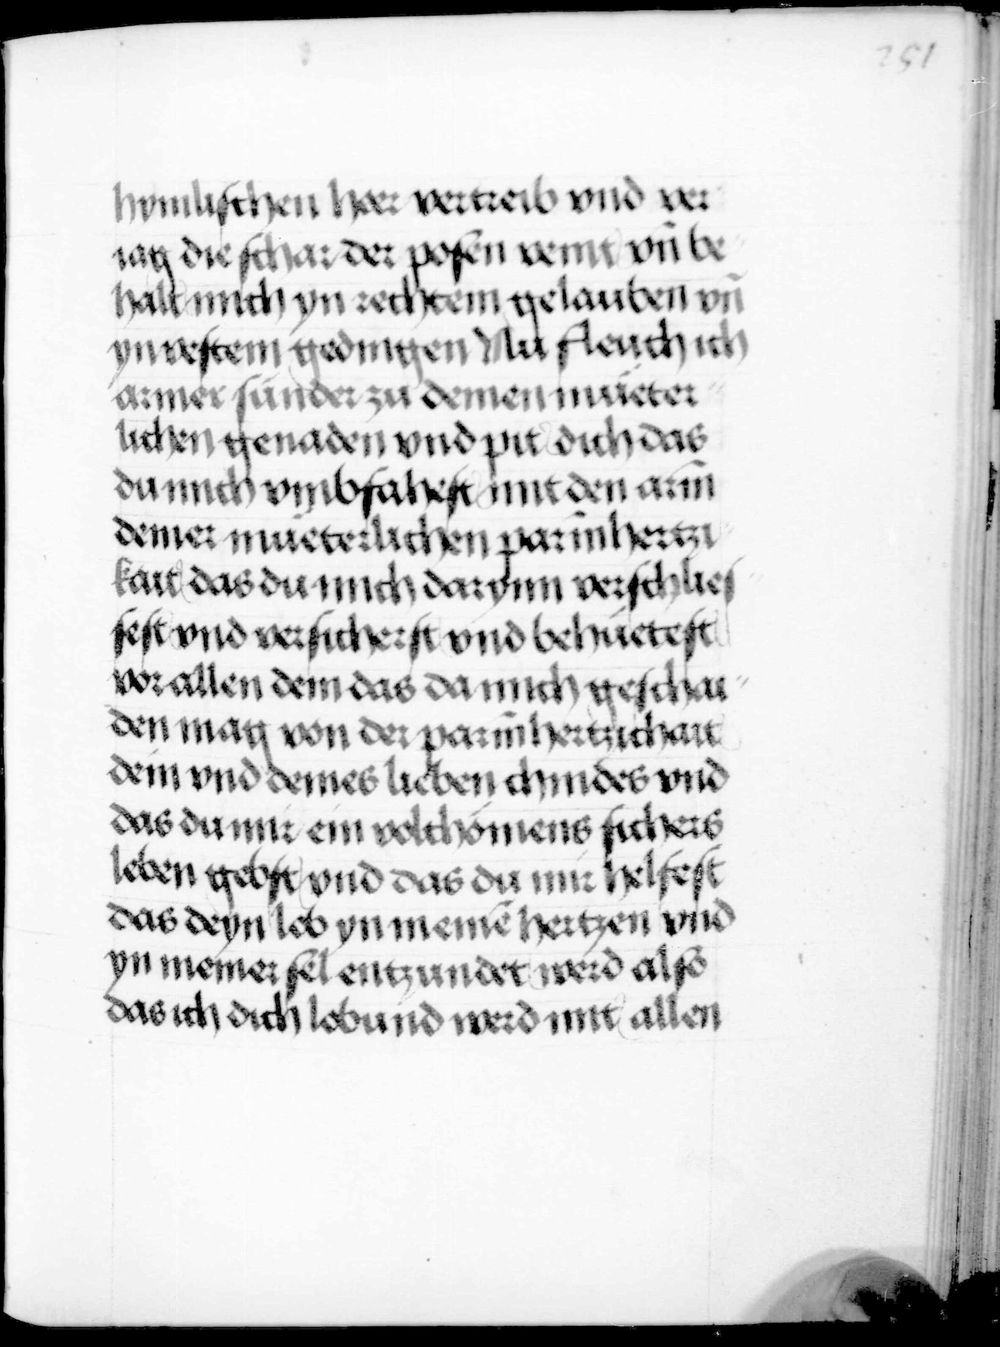 251
hymlischen heer vertreib vnd ver
iag die schar der posen veint vn̄ be〃
halt mich yn rechtem gelauben vn̄
yn vestem gedingen Nu fleuch ich
armer sunder zu deinen mueter〃
lichen genaden vnd pit dich das
du mich vmbfahest mit den arm̄
deiner mueterlichen parm̄hertzi〃
kait das du mich darynn verschlies〃
sest vnd versicherst vnd behuetest
vor allen dem das da mich geschai〃
den mag von der parm̄hertzichait
dein vnd deines lieben chindes vnd
das du mir ein volchomens sichers
leben gebst vnd das du mir helfest
das deyn lob yn meinē hertzen vnd
yn meiner sel entzundet werd also
das ich dich lobund werd mit allen